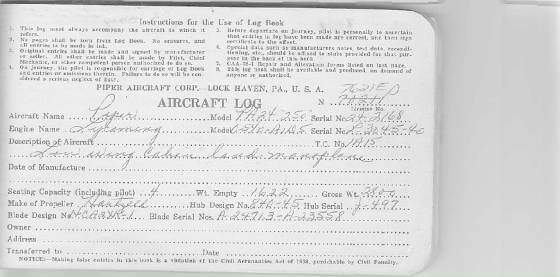 Instructions for the Use of Log Book
1. This log must always accompany the aircraft to which it refers.
2. No pages shall be torn from Log Book. No erasures, and all entries to be made in ink.
3. Original entries shall be made and signed by manufacturer or seller. All other entries shall be made by Pilot, Chief Mechanic, or other competent person authorized to do so.
On journey, the pilot is responsible for carriage of Log Book and entries or omissions therein. Failure to do so will be considered a serious neglect of duty.
5. Before departure on journey, pilot is personally to ascertain that entries in log have been made correct, and turn sign statements to the effect.
Special data such as manufacturers notes, test data, reconditioning, etc., should be affixed to stubs provided for that purpose in the back of this book.
CAA-18-1 Repair and Alteration forms listed on last page.
This log book shall be available and produced on demand of anyone so authorized.
PIPER AIRCRAFT CORP.—LOCK HAVEN, PA., U. S. A.
7621P
AIRCRAFT LOG N
License No.
Aircraft Name Piper Model PA24 250 Serial No. 24-2168
Engine Name Lycoming Model O540-A1D5 Serial No. L-2645-40
Description of Aircraft T.C. No. 1A15
Low wing Cabin Land monoplane
Date of Manufacture
Seating Capacity (including pilot) 4 Wt. Empty 1622 Gross Wt. 2800
Make of Propeller Hartzell Hub Design No. 84D-45 Hub Serial J-497
Blade Design No. Blade Serial Nos. A-24713-A-23558
Owner
Address
Transferred to Date
NOTICE:—Making false entries in this book is a violation of the Civil Aeronautics Act of 1938, punishable by Civil Penalty.